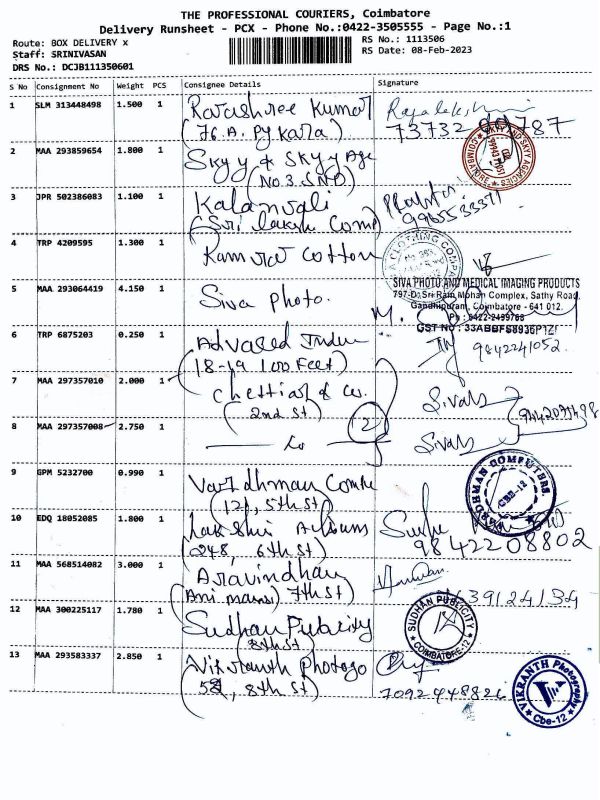 THE PROFESSIONAL COURIERS, Coimbatore
Delivery Runsheet - PCX - Phone No.:0422-3505555 - Page No.:1
Route: BOX DELIVERY x
RS No.: 1113506
Staff: SRINIVASAN
RS Date: 08-Feb-2023
DRS No.: DCJB111350601
S No Consignment No Weight PCS Consignee Details Signature
1 SLM 313448498 1.500 1 Rajashree Kumar
(76.A. Pykara)
73732 99787
2 MAA 293859654 1.800 1 Skyy & Skyy Age
(No.3. S.N.D.)
SKYY AND SKYY AGENCIES
3 JPR 502386083 1.100 1 Kalanvali
(Sri Lakshi Comp)
4 TRP 4209595 1.300 1 Kamval Cotton
CLOTHING COMPA
5 MAA 293064419 4.150 1 Siva Photo.
SIVA PHOTO AND MEDICAL IMAGING PRODUCTS
797-D, Sri Ram Mohan Complex, Sathy Road,
Gandhipuram, Coimbatore - 641 012.
Ph : 0422-2499768
GST NO : 33ABBFS8936P1ZI
6 TRP 6875203 0.250 1 Advaced Indu
(18-19 100 Feet)
9842241052
7 MAA 297357010 2.000 1 Chettiar & Co.
(2nd St)
Sivals
8 MAA 297357008 2.750 1 Do
2
Sivals
9 GPM 5232700 0.990 1 Vardhman Comte
(121, 5th St)
VARDHMAN COMPUTERS
CBE-12
10 EDQ 18052085 1.800 1 Lakshi Albums
(248, 6th St)
9842208802
11 MAA 568514082 3.000 1 Aravindhan
(Ani mani) 7th St)
12 MAA 300225117 1.780 1 Sudhan Publicity
(8th St)
SUDHAN PUBLICITY
COIMBATORE-12
13 MAA 293583337 2.850 1 Vikranth Photogo
(58, 8th St)
7092448826
VIKRANTH Photography
Cbe-12